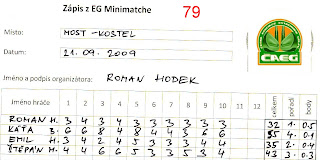 Zápis z EG Minimatche 79
Místo: MOST - KOSTEL
Datum: 21. 09. 2009
CAEG
Jméno a podpis organizátora: ROMAN HODEK
Jméno hráče 1 2 3 4 5 6 7 8 9 10 celkem pořadí body
ROMAN H. 3 4 3 4 3 3 3 3 3 3 32 1. 0.5
KÁŤA B. 6 6 8 4 8 4 4 3 6 6 55 4. 0.1
EMIL H. 3 4 4 2 35 2. 0.4
ŠTĚPÁN H. 4 6 6 5 3 3 5 4 43 3. 0.3